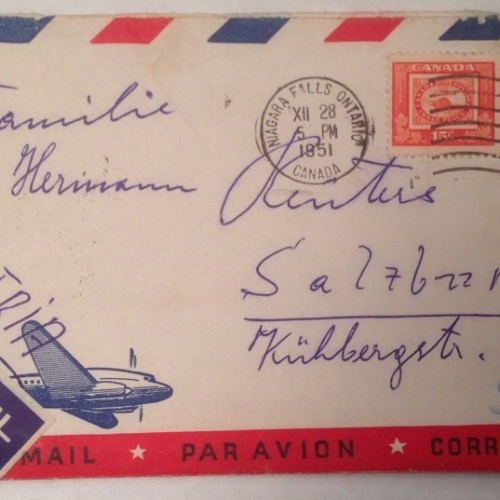 CANADA
15¢
NIAGARA FALLS ONTARIO
XII 28
5 PM
1951
CANADA
Familie
Hermann Reuters
Salzburg
Kühbergstr.
MAIL ★ PAR AVION ★ CORR